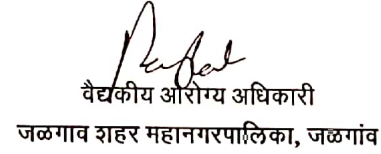 वैद्यकीय आरोग्य अधिकारी
जळगाव शहर महानगरपालिका, जळगांव